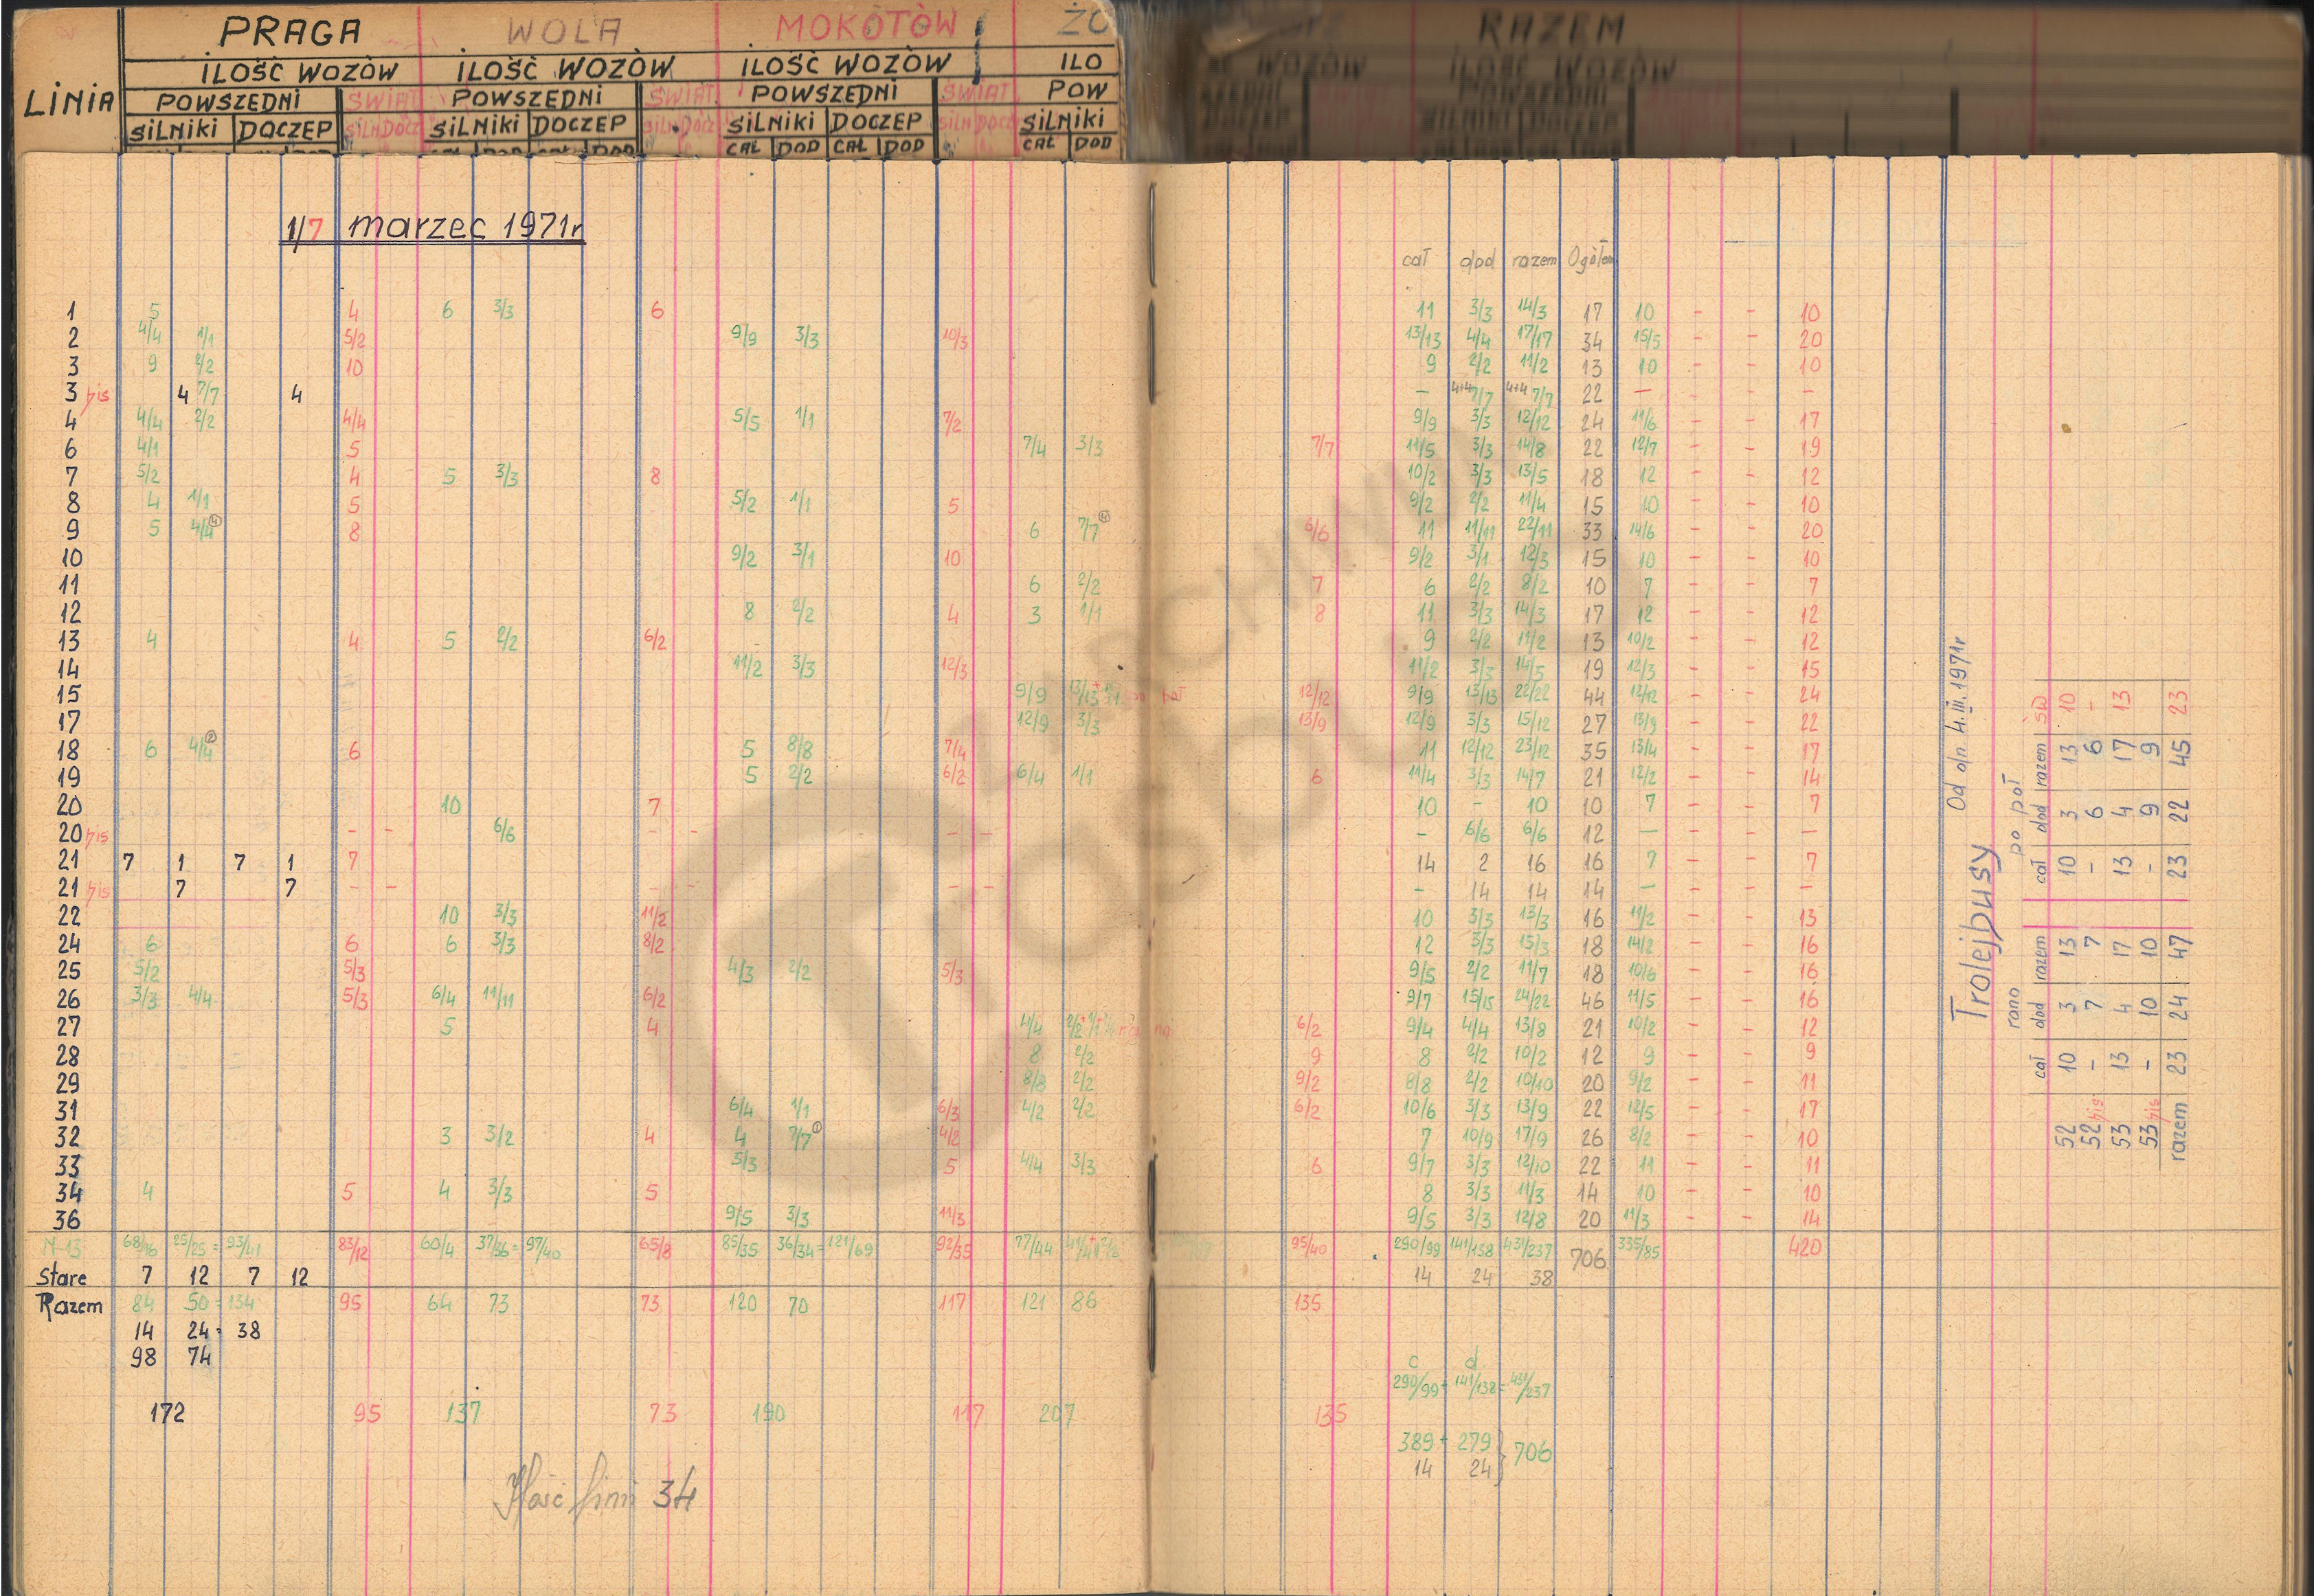 PRAGA WOLA MOKOTÓW ŻO RAZEM
ILOŚĆ WOZÓW ILOŚĆ WOZÓW ILOŚĆ WOZÓW ILO WOZÓW ILOŚĆ WOZÓW
LINIA POWSZEDNI ŚWIĄT. POWSZEDNI ŚWIĄT. POWSZEDNI ŚWIĄT. POW POWSZEDNI
SILNIKI DOCZEP SILN DOCZ SILNIKI DOCZEP SILN DOCZ SILNIKI DOCZEP SILN DOCZ SILNIKI SILNIKI DOCZEP
CAŁ DOD CAŁ DOD CAŁ DOD CAŁ DOD CAŁ DOD
1/7 marzec 1971r
cał dod razem Ogółem
1 5 4 6 3/3 6 11 3/3 14/3 17 10 - - 10
2 4/4 1/1 5/2 9/9 3/3 10/3 13/13 4/4 17/17 34 15/5 - - 20
3 9 2/2 10 9 2/2 11/2 13 10 - - 10
3 bis 4 7/7 4 - 4+4 7/7 4+4 7/7 22 - - - -
4 4/4 2/2 4/4 5/5 1/1 7/2 9/9 3/3 12/12 24 11/6 - - 17
6 4/1 5 7/4 3/3 7/7 11/5 3/3 14/8 22 12/7 - - 19
7 5/2 4 5 3/3 8 10/2 3/3 13/5 18 12 - - 12
8 4 1/1 5 5/2 1/1 5 9/2 2/2 11/4 15 10 - - 10
9 5 4/4 4 8 6 7/7 4 6/6 11 11/11 22/11 33 14/6 - - 20
10 9/2 3/1 10 9/2 3/1 12/3 15 10 - - 10
11 6 2/2 7 6 2/2 8/2 10 7 - - 7
12 8 2/2 4 3 1/1 8 11 3/3 14/3 17 12 - - 12
13 4 4 5 2/2 6/2 9 2/2 11/2 13 10/2 - - 12
14 11/2 3/3 12/3 11/2 3/3 14/5 19 12/3 - - 15
15 9/9 13/13 12/12 9/9 13/13 22/22 44 12/12 - - 24
17 12/9 3/3 13/9 12/9 3/3 15/12 27 13/9 - - 22
18 6 4/4 2 6 5 8/8 7/4 11 12/12 23/12 35 13/4 - - 17
19 5 2/2 6/2 6/4 1/1 6 11/4 3/3 14/7 21 12/2 - - 14
20 10 7 10 - 10 10 7 - - 7
20 bis - - 6/6 - - - - - 6/6 6/6 12 - - - -
21 7 1 7 1 7 14 2 16 16 7 - - 7
21 bis 7 7 - - - - - - - 14 14 14 - - - -
22 10 3/3 11/2 10 3/3 13/3 16 11/2 - - 13
24 6 6 6 3/3 8/2 12 3/3 15/3 18 14/2 - - 16
25 5/2 5/3 4/3 2/2 5/3 9/5 2/2 11/7 18 10/6 - - 16
26 3/3 4/4 5/3 6/4 11/11 6/2 9/7 15/15 24/22 46 11/5 - - 16
27 5 4 4/4 2/2 6/2 9/4 4/4 13/8 21 10/2 - - 12
28 8 2/2 9 8 2/2 10/2 12 9 - - 9
29 8/8 2/2 9/2 8/8 2/2 10/10 20 9/2 - - 11
31 6/4 1/1 6/3 4/2 2/2 6/2 10/6 3/3 13/9 22 12/5 - - 17
32 3 3/2 4 4 7/7 1 4/2 7 10/9 17/9 26 8/2 - - 10
33 5/3 5 4/4 3/3 6 9/7 3/3 12/10 22 11 - - 11
34 4 5 4 3/3 5 8 3/3 11/3 14 10 - - 10
36 9/5 3/3 11/3 9/5 3/3 12/8 20 11/3 - - 14
N-13 68/16 25/25 = 93/41 83/12 60/4 37/36 = 97/40 65/8 85/35 36/34 = 121/69 92/35 77/44 95/40 290/99 141/138 431/237 706 335/85 420
Stare 7 12 7 12 14 24 38
Razem 84 50 = 134 95 64 73 73 120 70 117 121 86 135
14 24 = 38
98 74
c d
290/99 + 141/138 = 431/237
172 95 137 73 190 117 207 135
389 + 279 } 706
14 24
Ilość linii 34
Trolejbusy Od dn 4.III.1971r
rano po poł
cał dod razem cał dod razem ŚW
52 10 3 13 10 3 13 10
52 bis - 7 7 - 6 6 -
53 13 4 17 13 4 17 13
53 bis - 10 10 - 9 9
razem 23 24 47 23 22 45 23